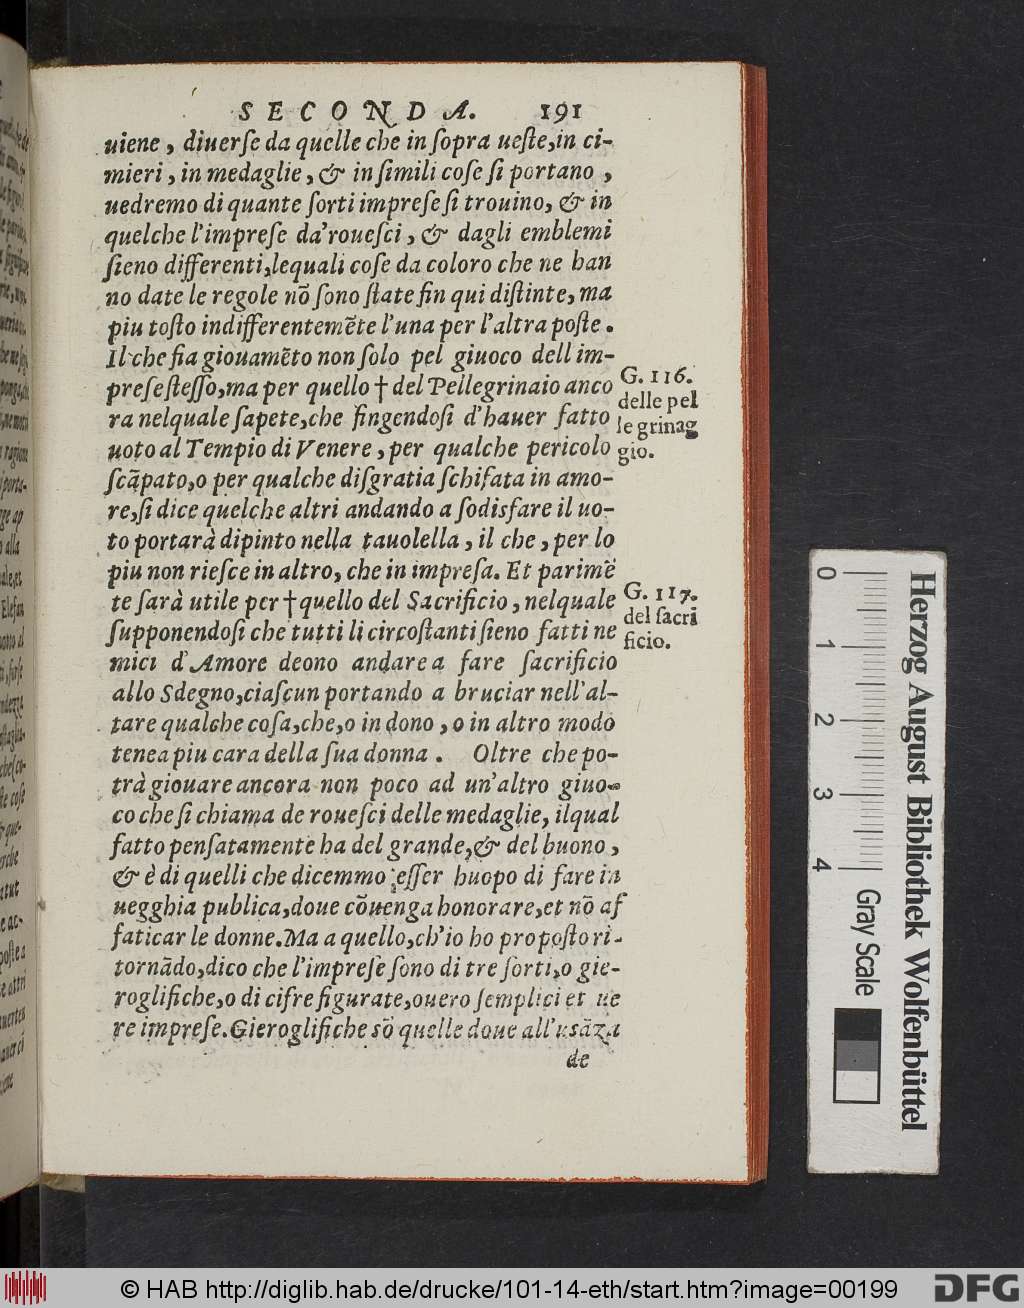 SECONDA. 191
uiene, diuerſe da quelle che in ſopra ueſte, in ci-
mieri, in medaglie, & in ſimili coſe ſi portano,
uedremo di quante ſorti impreſe ſi trouino, & in
quelche l'impreſe da'roueſci, & dagli emblemi
ſieno differenti, lequali coſe da coloro che ne han
no date le regole nõ ſono ſtate fin qui diſtinte, ma
piu toſto indifferentemẽte l'una per l'altra poſte.
Il che fia giouamẽto non ſolo pel giuoco dell im-
preſe ſteſſo, ma per quello † del Pellegrinaio anco
ra nelquale ſapete, che fingendoſi d'hauer fatto
uoto al Tempio di Venere, per qualche pericolo
ſcãpato, o per qualche diſgratia ſchifata in amo-
re, ſi dice quelche altri andando a ſodisfare il uo-
to portarà dipinto nella tauolella, il che, per lo
piu non rieſce in altro, che in impreſa. Et parimẽ
te ſarà utile per † quello del Sacrificio, nelquale
ſupponendoſi che tutti li circoſtanti ſieno fatti ne
mici d'Amore deono andare a fare ſacrificio
allo Sdegno, ciaſcun portando a bruciar nell'al-
tare qualche coſa, che, o in dono, o in altro modo
tenea piu cara della ſua donna. Oltre che po-
trà giouare ancora non poco ad un'altro giuo-
co che ſi chiama de roueſci delle medaglie, ilqual
fatto penſatamente ha del grande, & del buono,
& è di quelli che dicemmo eſſer huopo di fare in
uegghia publica, doue cõuenga honorare, et nõ af
faticar le donne. Ma a quello, ch'io ho propoſto ri-
tornãdo, dico che l'impreſe ſono di tre ſorti, o gie-
roglifiche, o di cifre figurate, ouero ſemplici et ue
re impreſe. Gieroglifiche sõ quelle doue all'uſãza
de
G. 116.
delle pel
le grinag
gio.
G. 117.
del ſacri
ficio.
0 1 2 3 4
Herzog August Bibliothek Wolfenbüttel
Gray Scale
© HAB http://diglib.hab.de/drucke/101-14-eth/start.htm?image=00199
DFG